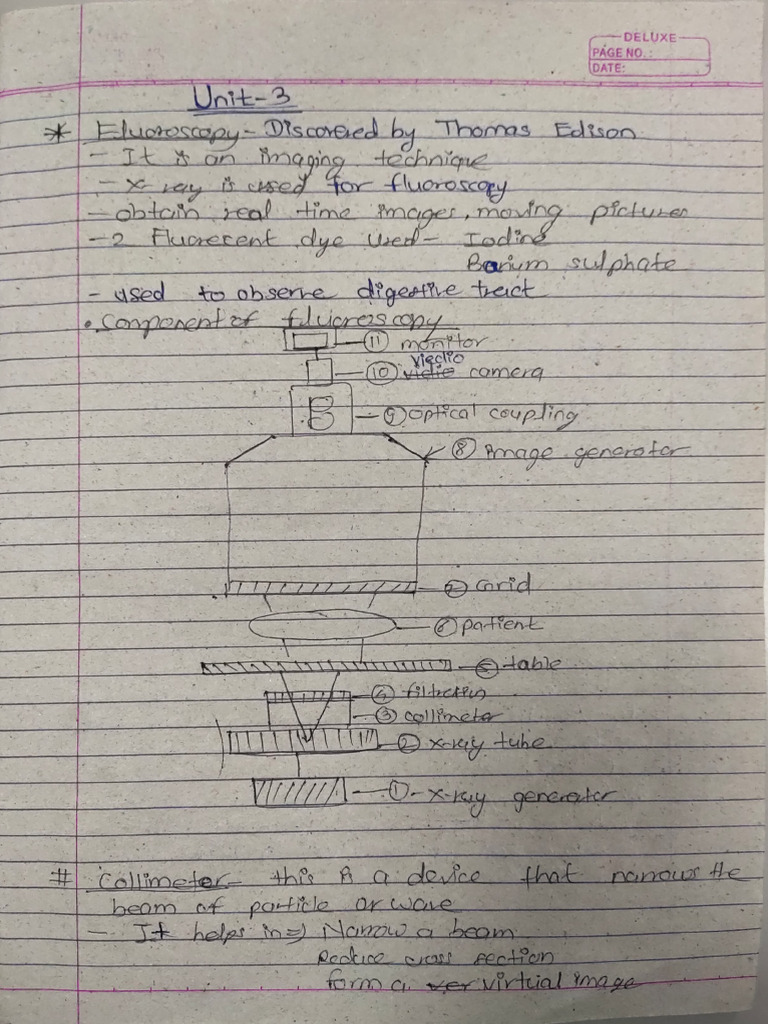 DELUXE
PAGE NO.:
DATE:
Unit-3
* Fluoroscopy - Discovered by Thomas Edison
- It is an imaging technique
- X-ray is used for fluoroscopy
- obtain real time images, moving pictures
- 2 Fluorecent dye used - Iodine
Barium sulphate
- used to observe digestive tract
• Component of fluoroscopy
⑪ monitor
⑩ vidie viedio camera
⑨ optical coupling
⑧ Image generator
⑦ Grid
⑥ patient
⑤ table
④ filtration
③ collimeter
② x-ray tube
① - x-ray generator
# Collimeter - this is a device that narrows the
beam of particle or wave
- It helps in ⇒ Narrow a beam
Reduce cross section
form a ver virtual image